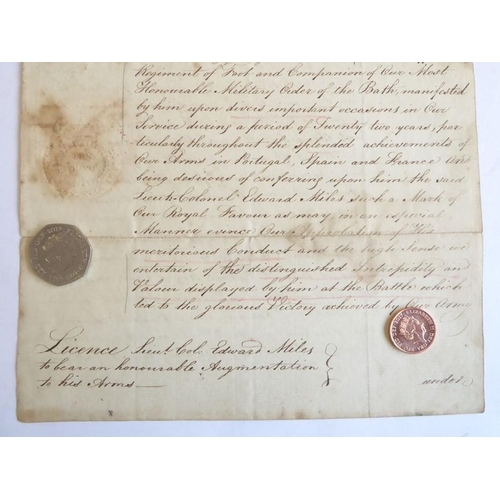 Regiment of Foot and Companion of Our Most
Honourable Military Order of the Bath, manifested
by him upon divers important occasions in Our
Service during a period of Twenty two years, par-
ticularly throughout the splendid achievements of
Our Arms in Portugal, Spain and France and
being desirous of conferring upon him the said
Lieut: Colonel Edward Miles such a Mark of
Our Royal Favour as may in an especial
Manner evince Our Approbation of his
meritorious Conduct and the high Sense we
entertain of the distinguished Intrepidity and
Valour displayed by him at the Battle which
led to the glorious Victory achieved by Our Army
under
Licence Lieut: Col: Edward Miles
to bear an honourable Augmentation
to his Arms